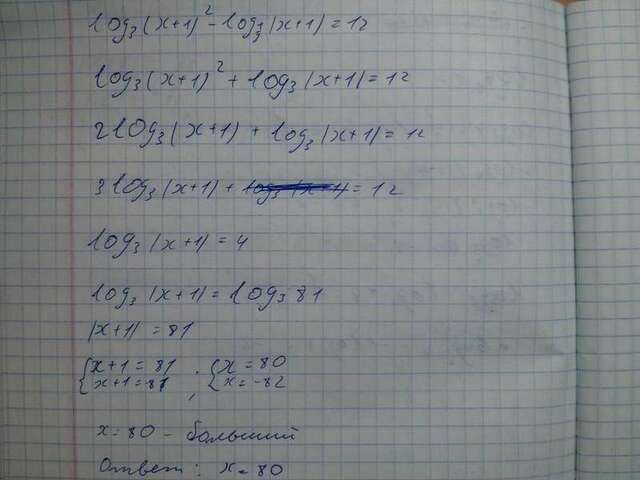 log₃(x+1)² - log₁/₃|x+1| = 12
log₃(x+1)² + log₃|x+1| = 12
2log₃(x+1) + log₃|x+1| = 12
3log₃|x+1| + log₃|x+1| = 12
log₃|x+1| = 4
log₃|x+1| = log₃81
|x+1| = 81
{x+1 = 81 ; {x = 80
{x+1 = 81 {x = -82
x = 80 - больший
Ответ: x = 80